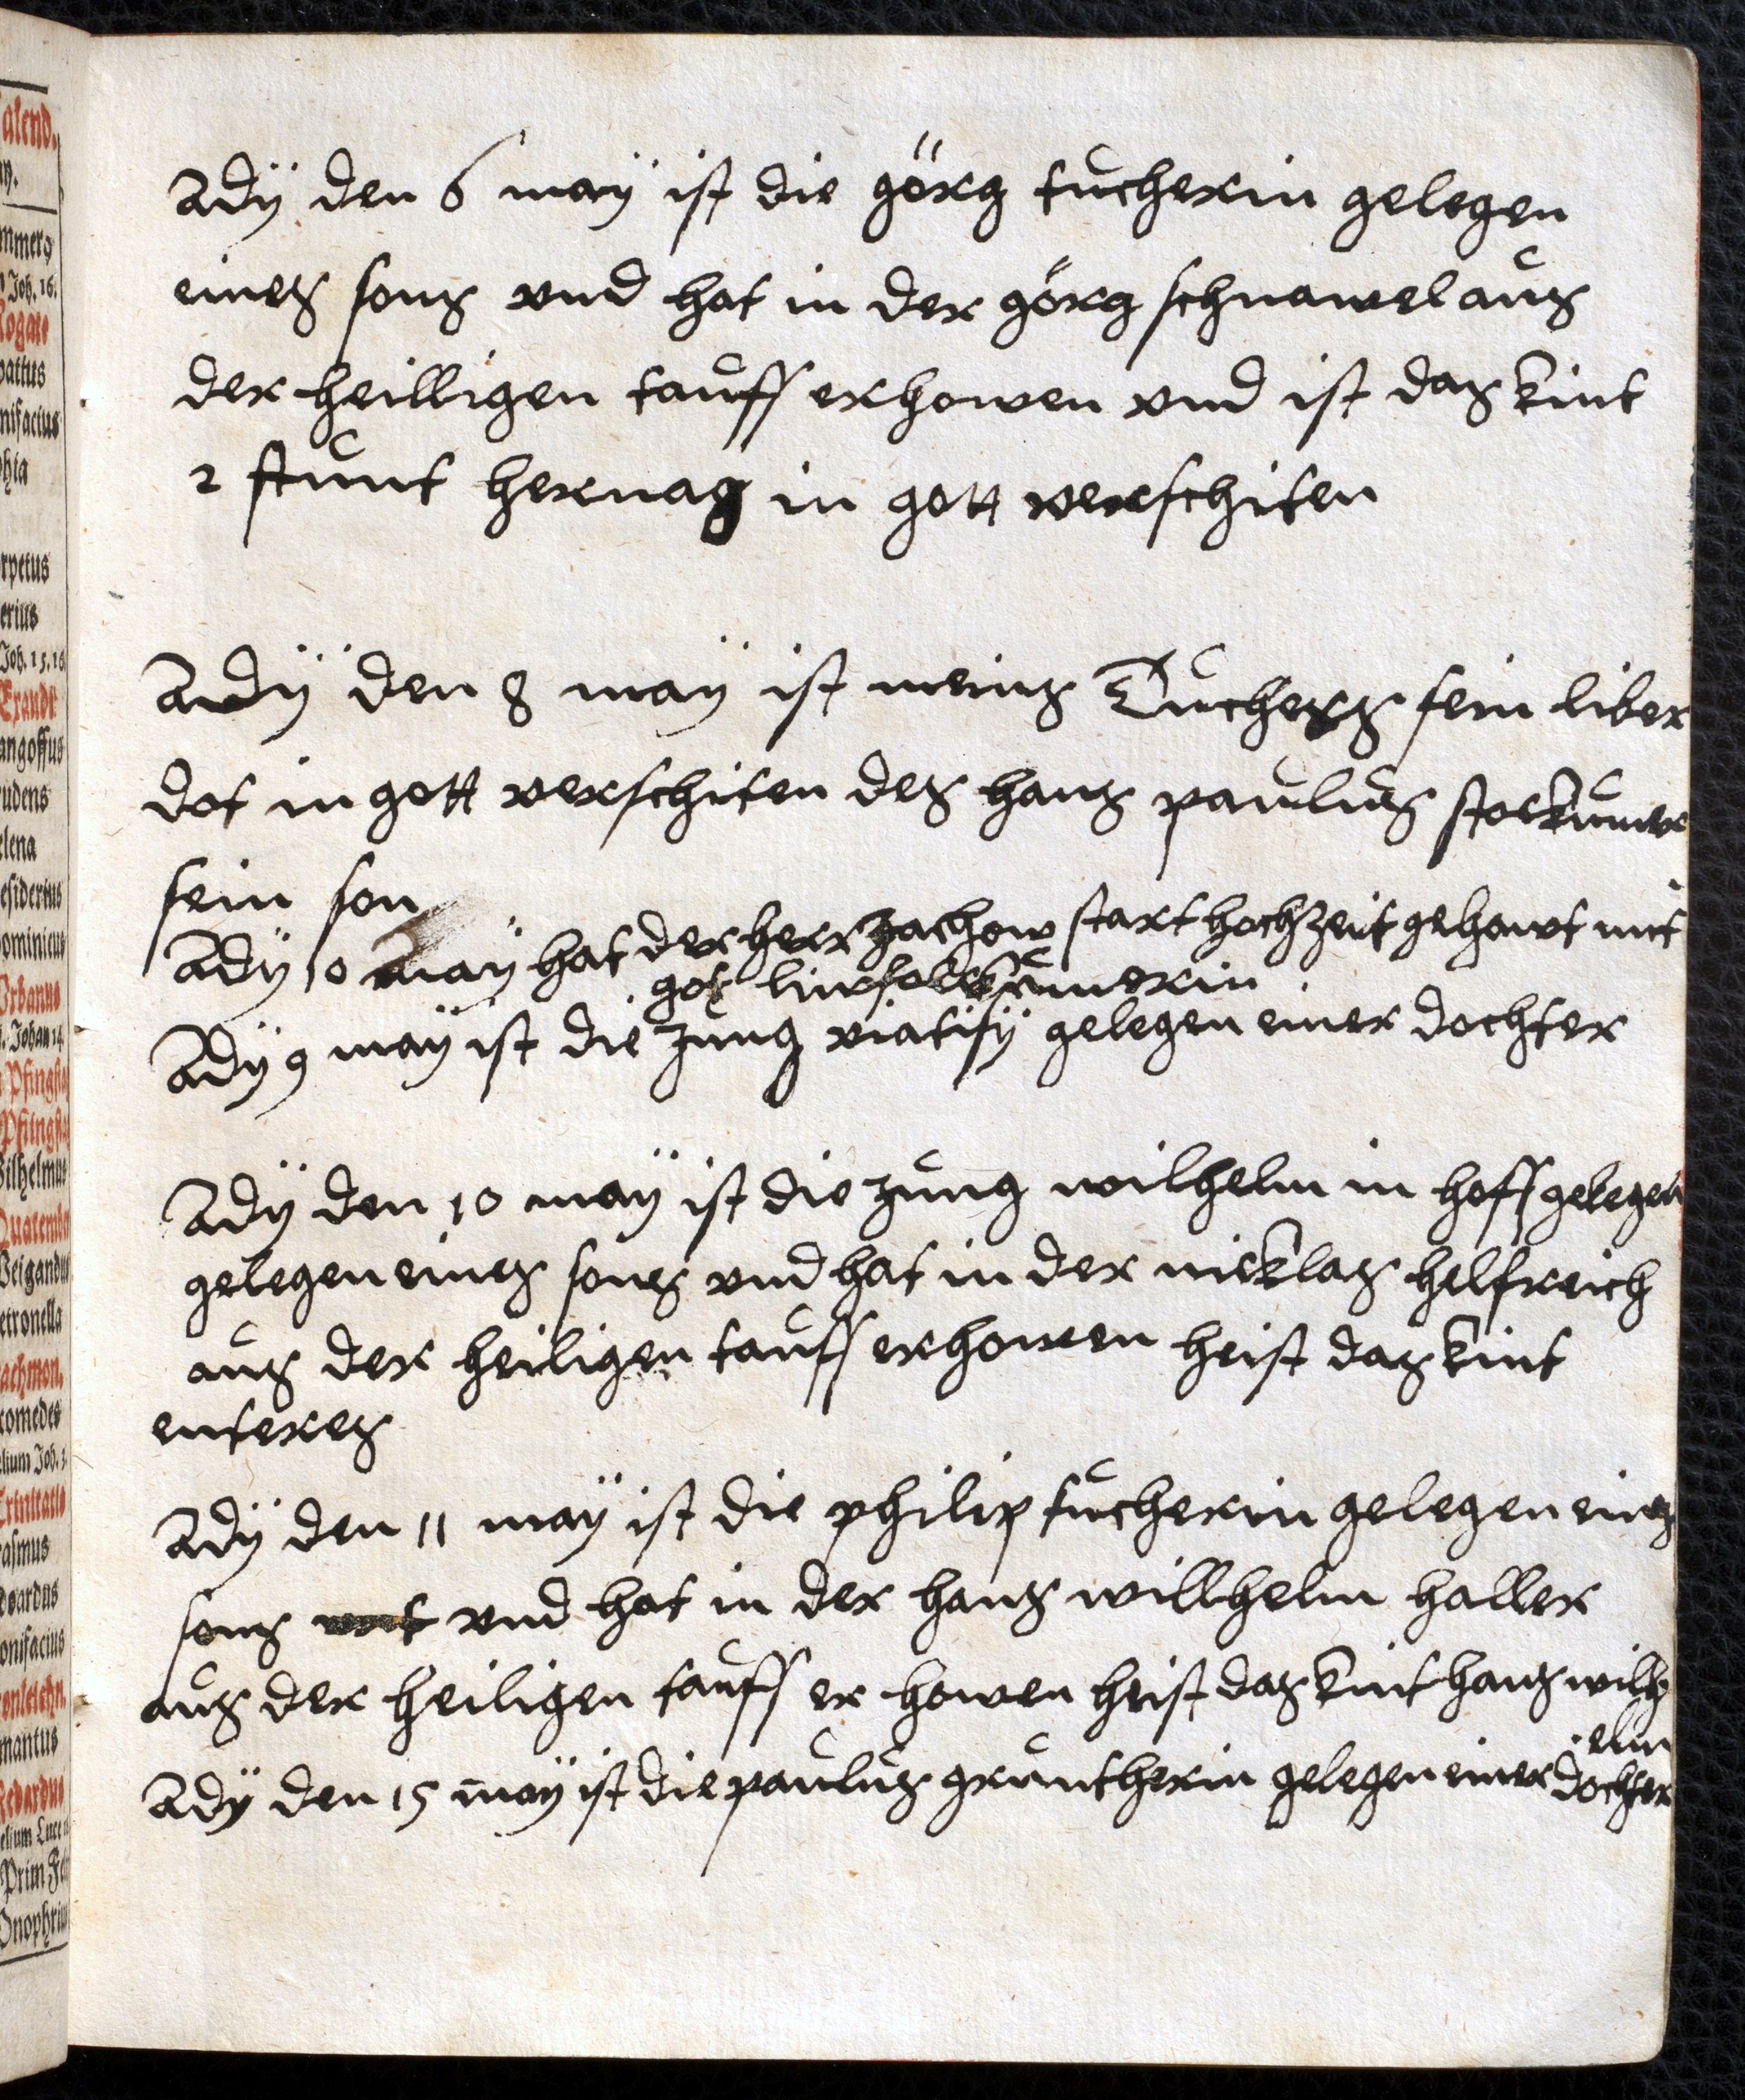 Adÿ den 6 maÿ ist die görg tucherin gelegen
eines sons vnd hat in der görg schnawel aus
der heilligen tauff erhowen vnd ist das kint
2 stunt hernag in gott verschiten
Adÿ den 8 maÿ ist meins Tuchers sein liber
dot in gott verschiten des hans paulus
sein son
Adÿ 10 maÿ hat der herr start hochzeit gehawt mit
Adÿ 9 maÿ ist die Jung viatisÿ gelegen einer dochter
Adÿ den 10 maÿ ist die Jung wilhelm im hoff gelegen
gelegen eines sons vnd hat in der nicklas helfreich
aus der heiligen tauff erhowen heist das kint
entres
Adÿ den 11 maÿ ist die philip tucherin gelegen eines
sons vnd hat in der hans willhelm haller
aus der heiligen tauff er howen heist das kint hans wilh
elm
Adÿ den 15 maÿ ist die paulus gruntherin gelegen einer dochter
alend.
Joh. 16.
Rogate
nifacius
phia
rpetus
erius
Joh. 15. 16
Exaudi
angoffus
udens
elena
esiderius
ominicus
Vrbanus
Johan 14.
Pfingst
Pfingst
Wilhelmus
Quatember
Weigandus
etronella
comedes
elium Joh. 3.
Trinitatis
asmus
onifacius
mantus
Medardus
elium Luce
Prim Fel
Onophrius